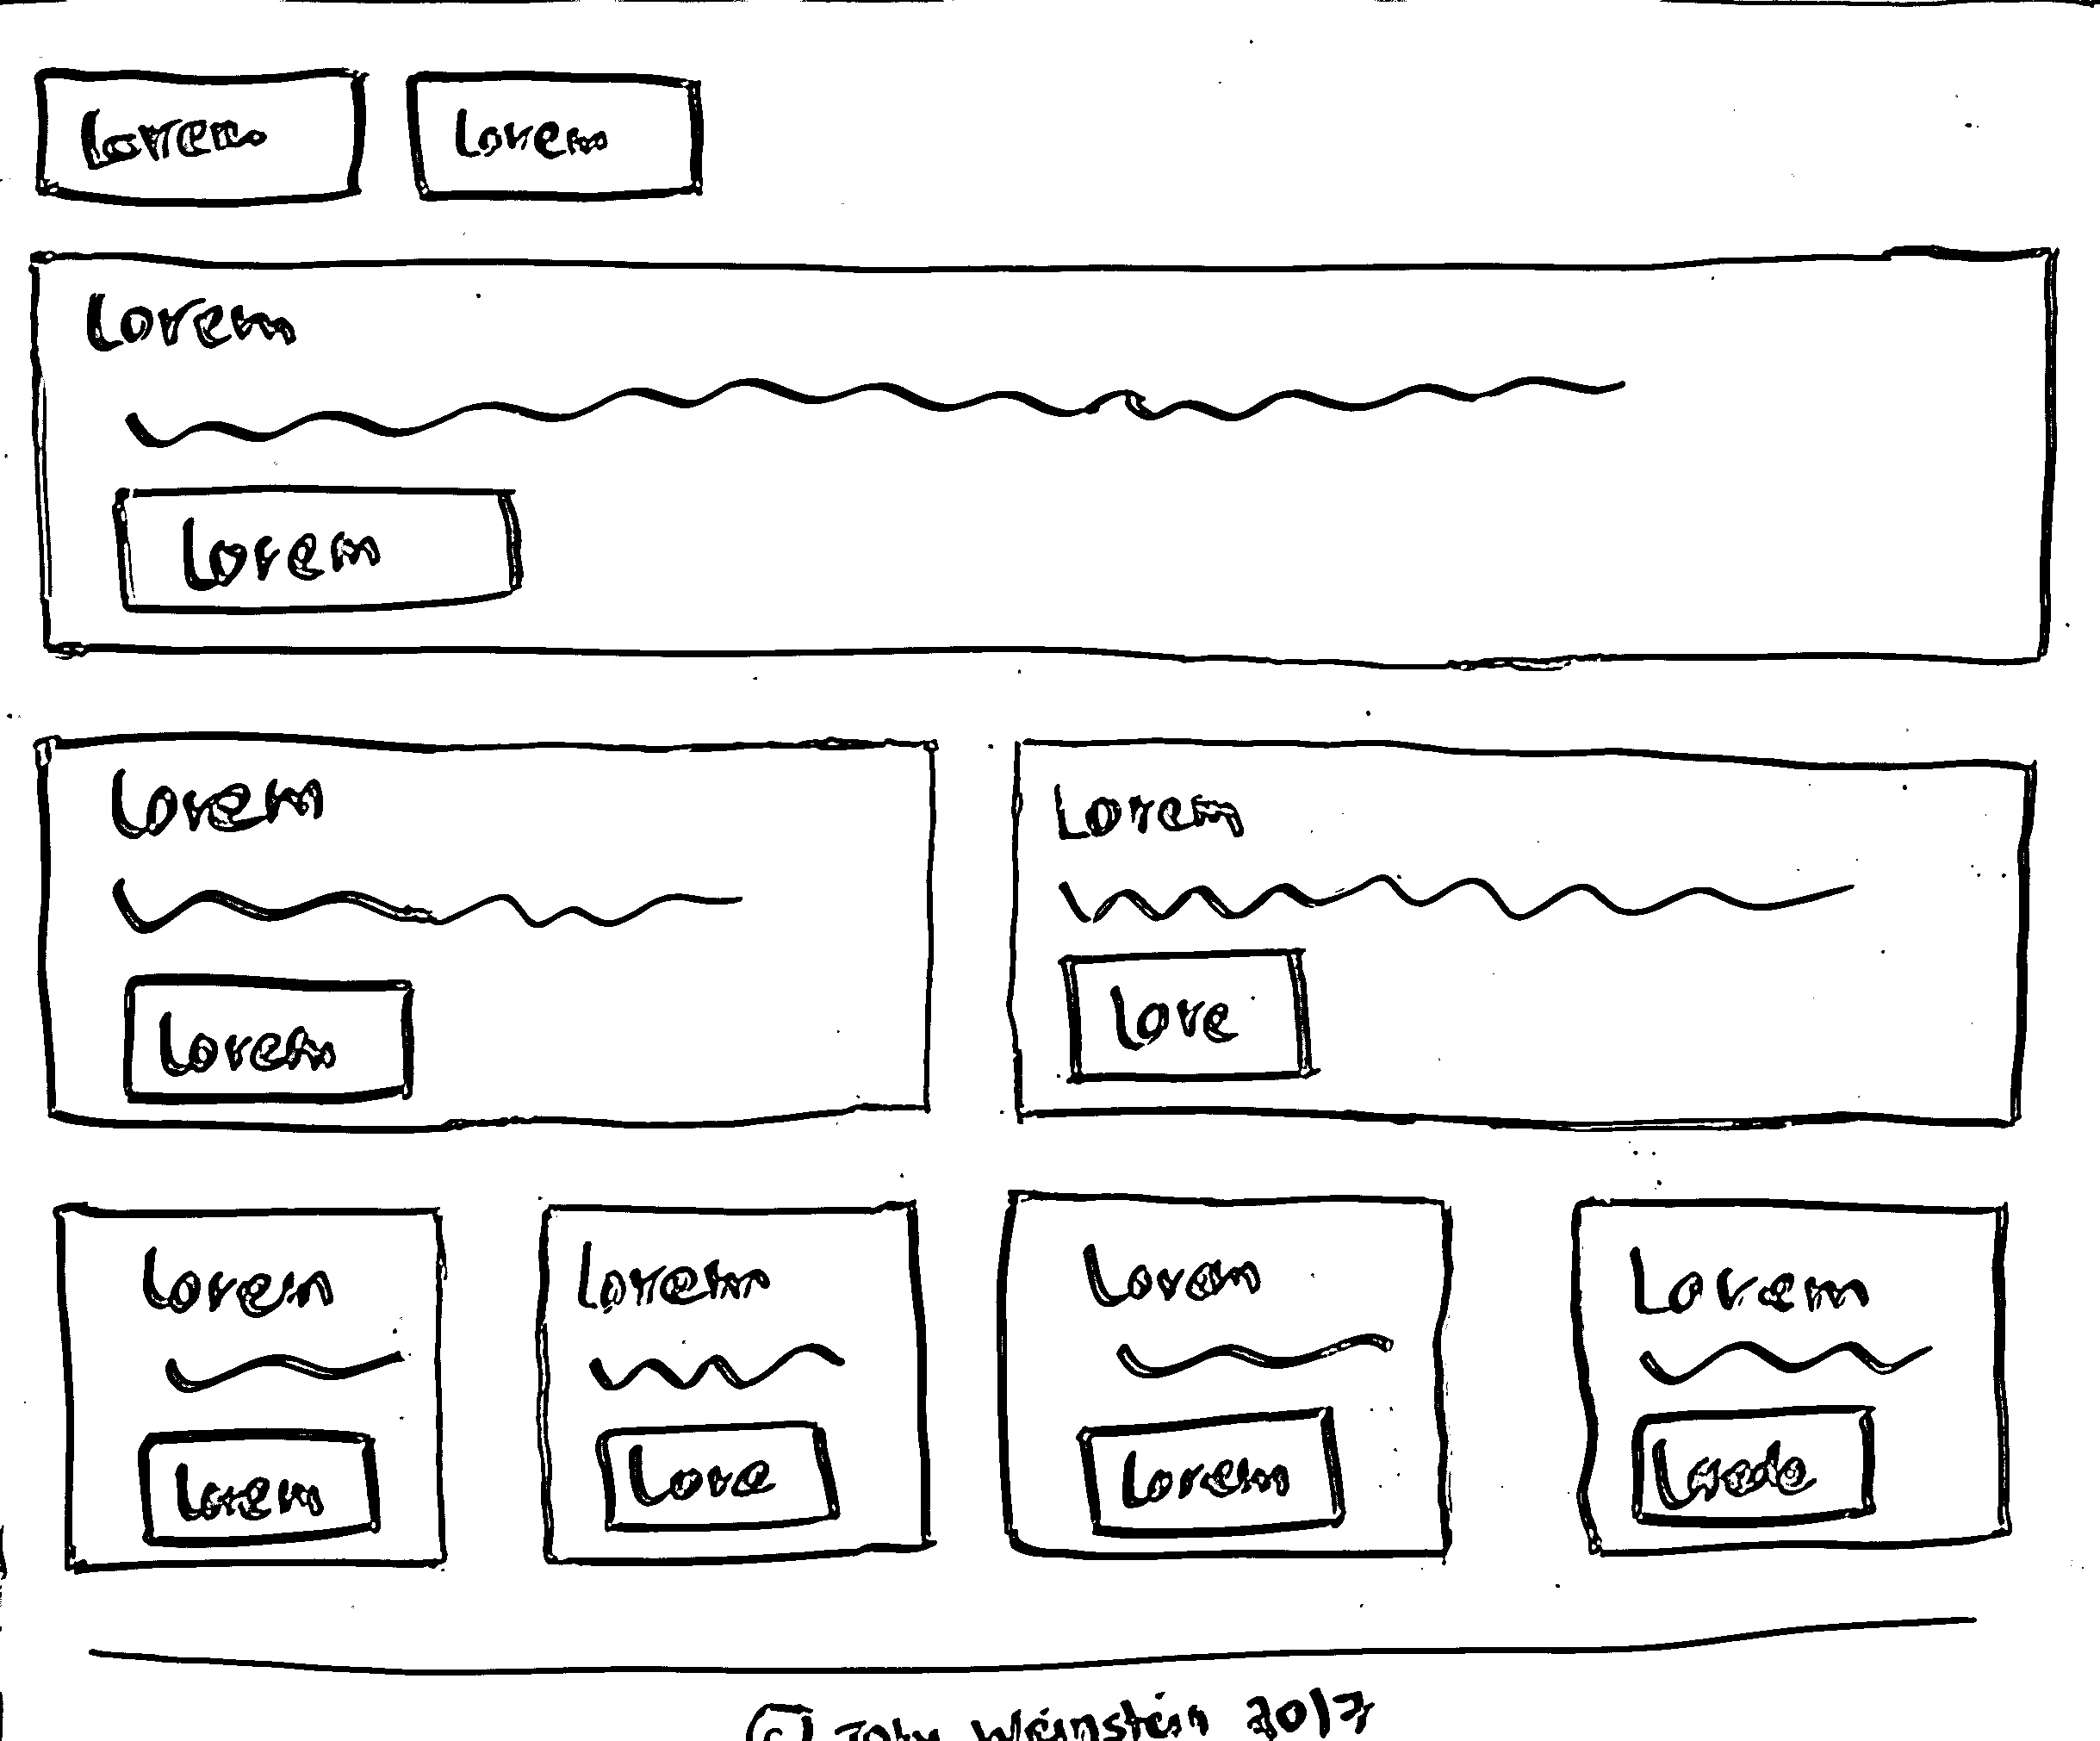 Lorem Lorem
Lorem
Lorem
Lorem Lorem
Lorem Love
Lorem Lorem Lorem Lorem
Lorem Love Lorem
© Weinstein 2017